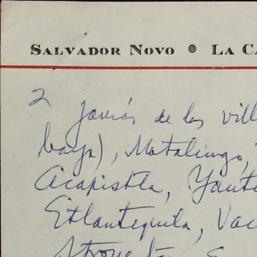 SALVADOR NOVO ® LA CA
2 Javier de las vill
baya), Matalingo,
Acapistla, Yaute
Etlantequila, Vac